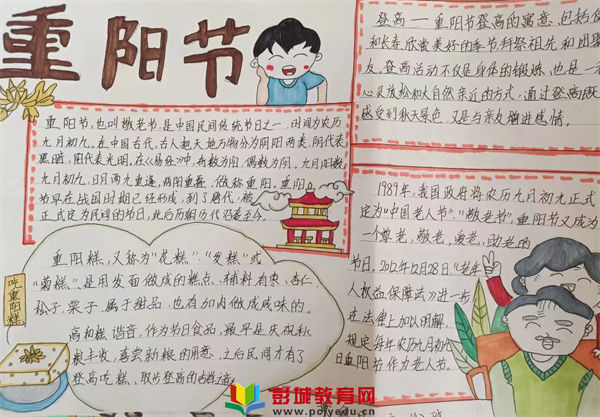 重阳节
重阳节，也叫敬老节，是中国民间传统节日之一，时间为农历
九月初九。在中国古代，古人把天地万物分为阴阳两类，阴代表
黑暗，阳代表光明。在《易经》中，奇数为阳，偶数为阴。九月阳数，
九月初九，日月两九重逢，两阳重叠，故称重阳。重阳
节早在战国时期已经形成，到了唐代，被
正式定为民间的节日，此后历朝历代沿袭至今。
吃重阳糕
重阳糕，又称为“花糕”、“发糕”或
“菊糕”，是用发面做成的糕点，辅料有枣、杏仁、
松子、栗子，属于甜品，也有加肉做成咸味的。
高和糕谐音，作为节日食品，最早是庆祝秋
粮丰收、喜尝新粮的用意，之后民间才有了
登高吃糕，取步步登高的吉祥之意。
登高——重阳节登高的寓意，包括
和长寿，欣赏美好的季节，拜祭祖先和团聚
友。登高活动不仅是身体的锻炼，也是一
心灵放松和大自然亲近的方式，通过登高既
感受到秋天景色，又是与亲友增进感情。
1989年，我国政府将农历九月初九正式
定为“中国老人节”、“敬老节”，重阳节又成为
一个尊老、敬老、爱老、助老的
节日，2012年12月28日，“老年
人权益保障法》进一步
在法律上加以明确，
规定每年农历九月初九
日重阳节作为老年人节。
彭城教育网
www.pcjyedu.cn